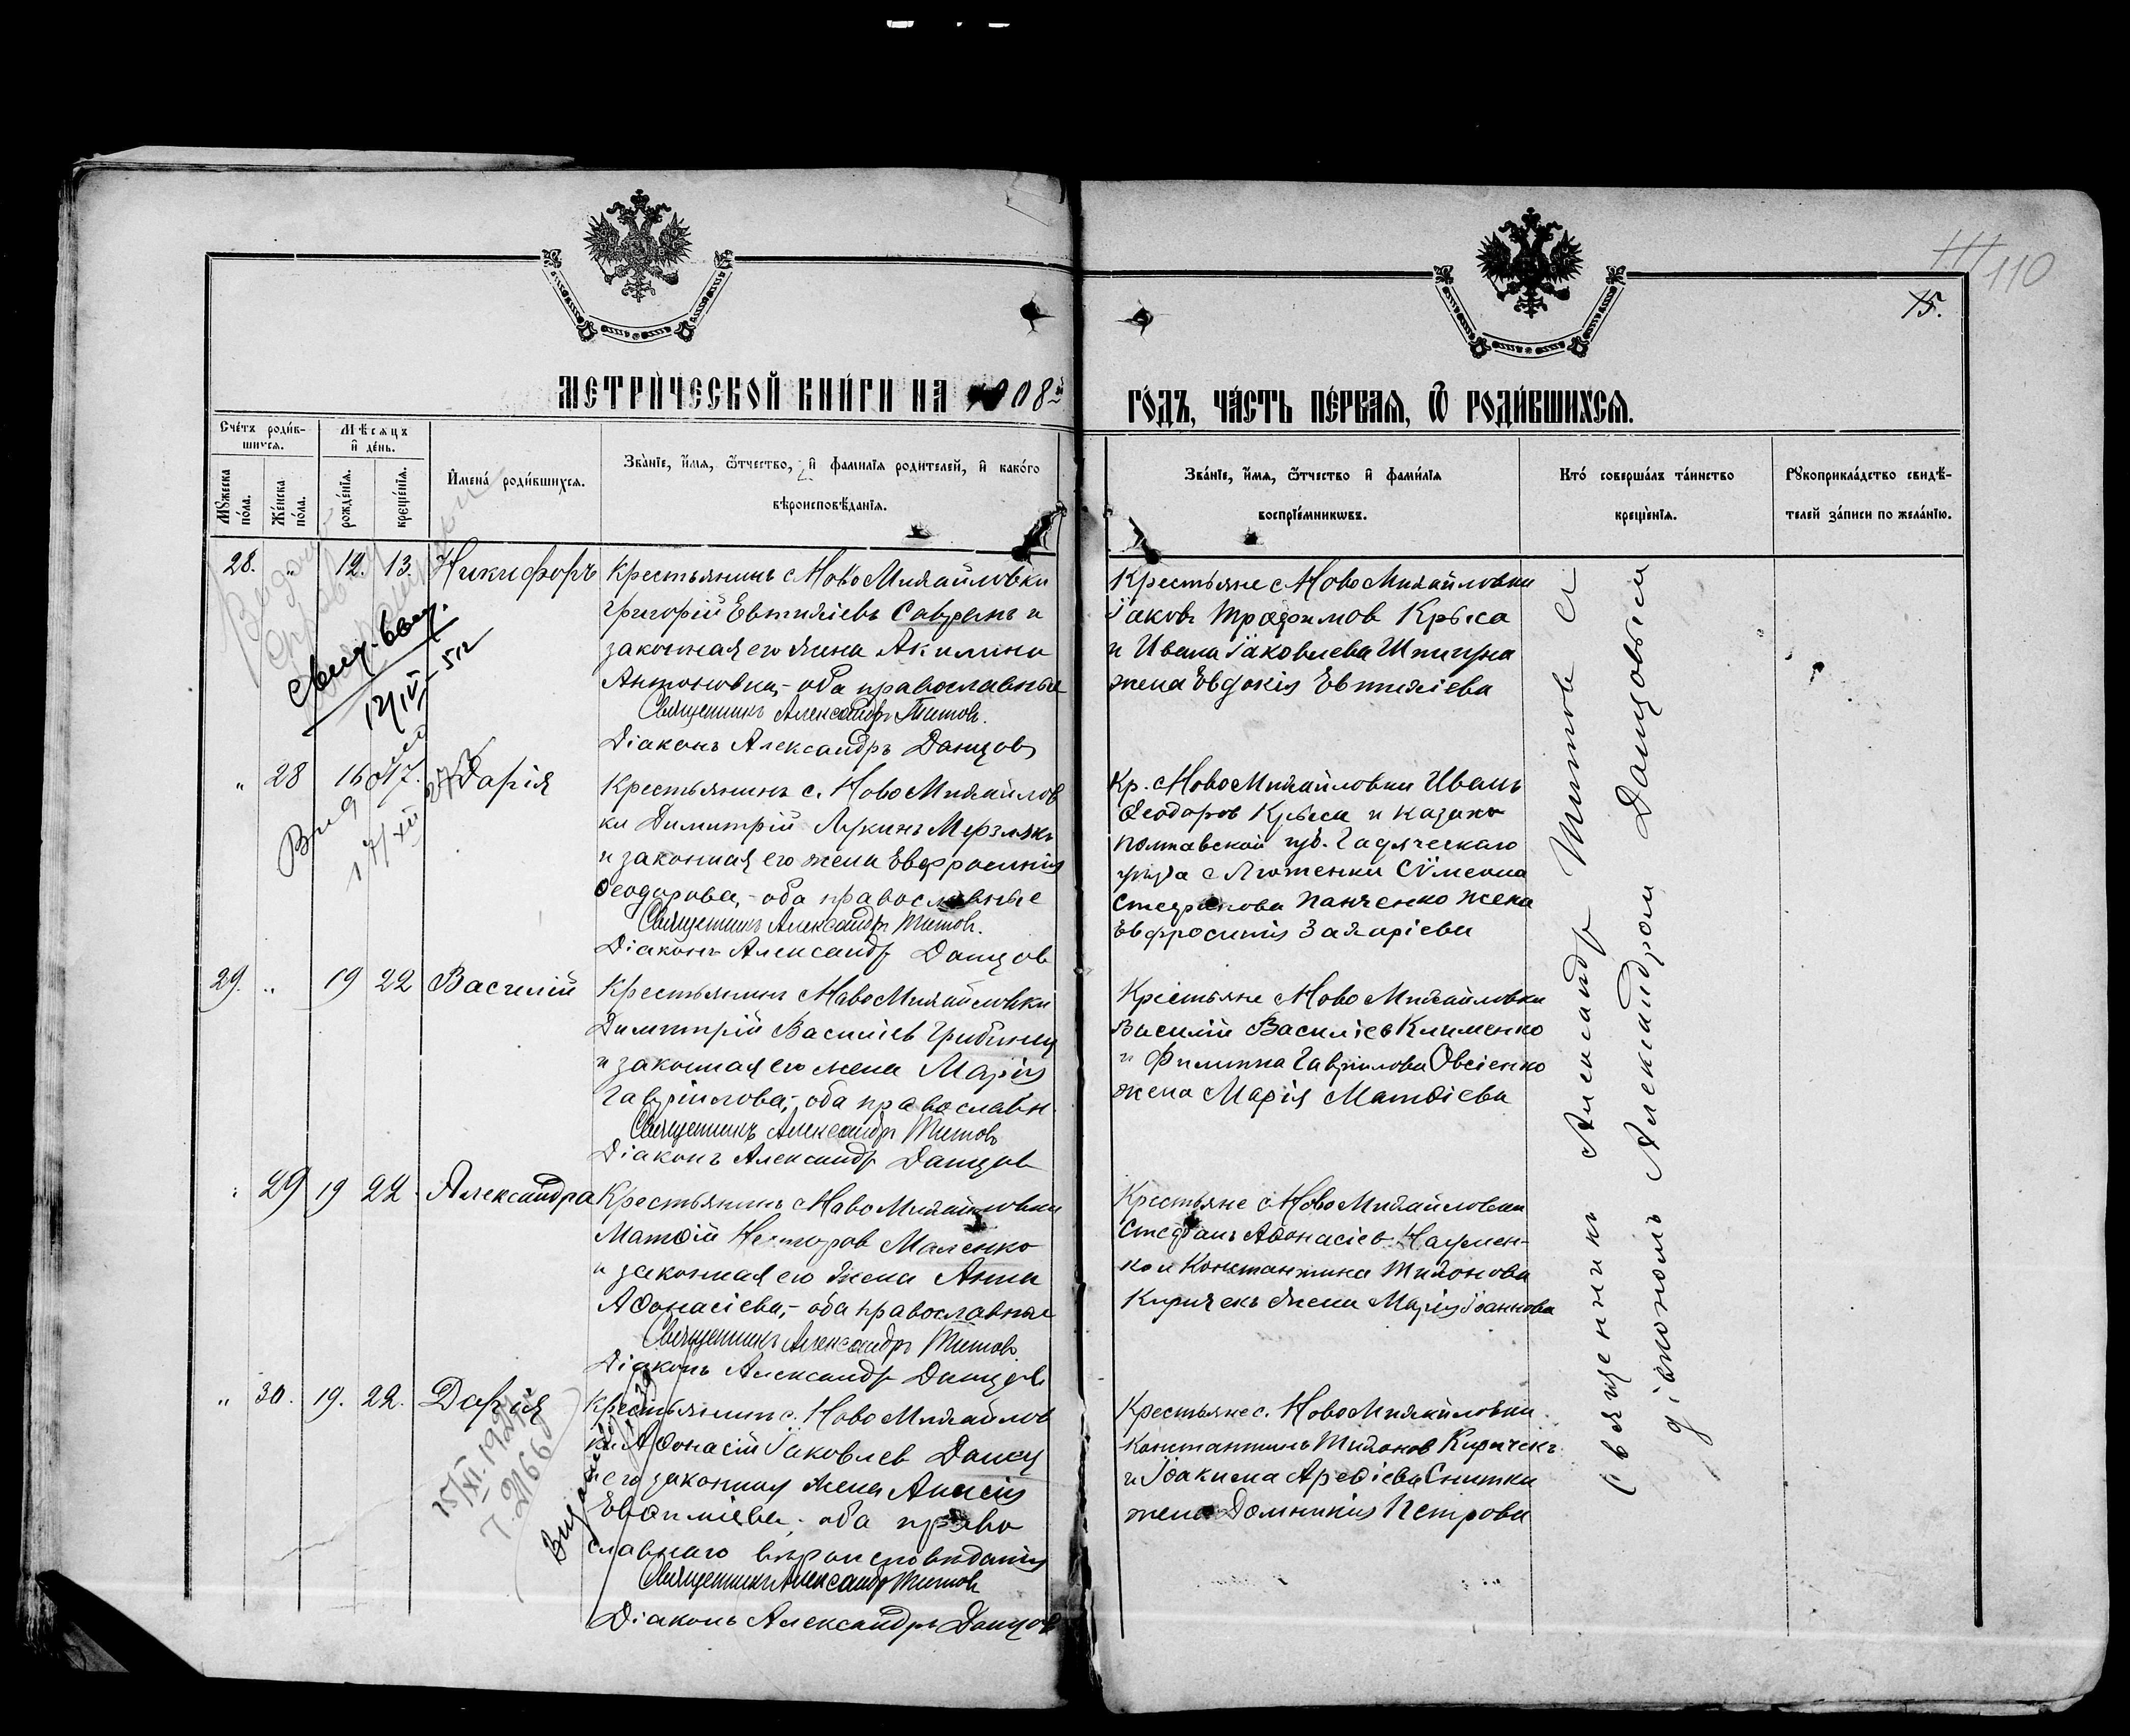 110
15.
МЕТРИЧЕСКОЙ КНИГИ НА 1908й
ГОДЪ, ЧАСТЬ ПЕРВАЯ, Ѿ РОДИВШИХСЯ.
Счетъ родив-
шихся.
Мѣсяцъ
и день.
Мужеска
пола.
Женска
пола.
рожденія.
крещенія.
Имена родившихся.
Званіе, имя, ѿтчество, и фамилія родителей, и какого
вѣроисповѣданія.
Званіе, имя, ѿтчество и фамилія
воспріемниковъ.
Кто совершалъ таинство
крещенія.
Рукоприкладство свидѣ-
телей записи по желанію.
28. " 12. 13. Никифоръ
Крестьянинъ с Ново Михайловки
Григорій Евтихіевъ Савранъ и
законная его жена Акилина
Антоновна,- оба православные
Священникъ Александръ Титов.
Діаконъ Александръ Данцов
Крестьяне с Ново Михайловки
Іаковъ Трофимов Крыса
и Ивана Іаковлева
жена Евдокія Евтихіева
12/IV-52
" 28 16 17. Дарія
Крестьянинъ с. Ново Михайлов
ки Димитрій Лукинъ Мерзлякъ
и законная его жена Евфросинія
Ѳеодорова,- оба православные
Священникъ Александръ Титов.
Діаконъ Александр Данцов
Кр. с Ново Михайловки Иванъ
Ѳеодоров Крыса и казака
Полтавской губ. Гадячскаго
уѣзда с Лютенки Сѵмеона
Стефанова Панченко жена
Евфросинія Захаріева
17/XII
29. " 19 22 Василій
Крестьянинъ с Ново Михайловки
Димитрій Василіев
и законная его жена Марія
Гавріилова,- оба православн.
Священникъ Александръ Титовъ
Діаконъ Александр Данцов
Крестьяне с Ново Михайловки
Василій Василіев Клименко
и Филиппа Гавриилова Овсіенко
жена Марія Матѳіева
" 29 19 22 Александра
Крестьянинъ с Ново Михайловки
Матѳій Несторов Маленко
и законная его жена Анна
Аѳонасіева,- оба православные
Священникъ Александръ Титовъ
Діаконъ Александр Данцов
Крестьяне с Ново Михайловки
Стефанъ Аѳонасіев Наумен-
ко и Константина Тихонова
Киричекъ жена Марія Іоаннова
" 30. 19. 22. Дарія
Крестьянин с. Ново Михайлов
ки Аѳонасій Іаковлев Данец
и его законная жена Анисія
Евѳиміева, оба право
славнаго вѣроисповѣданія
Священникъ Александръ Титовъ
Діаконъ Александръ Данцов
Крестьяне с. Ново Михайловки
Константинъ Тихонов Киричекъ
и Іоакима Арефіева Снитки
жена Домникія Петрова
Священникъ Александр Титов съ
діакономъ Александром Данцовым